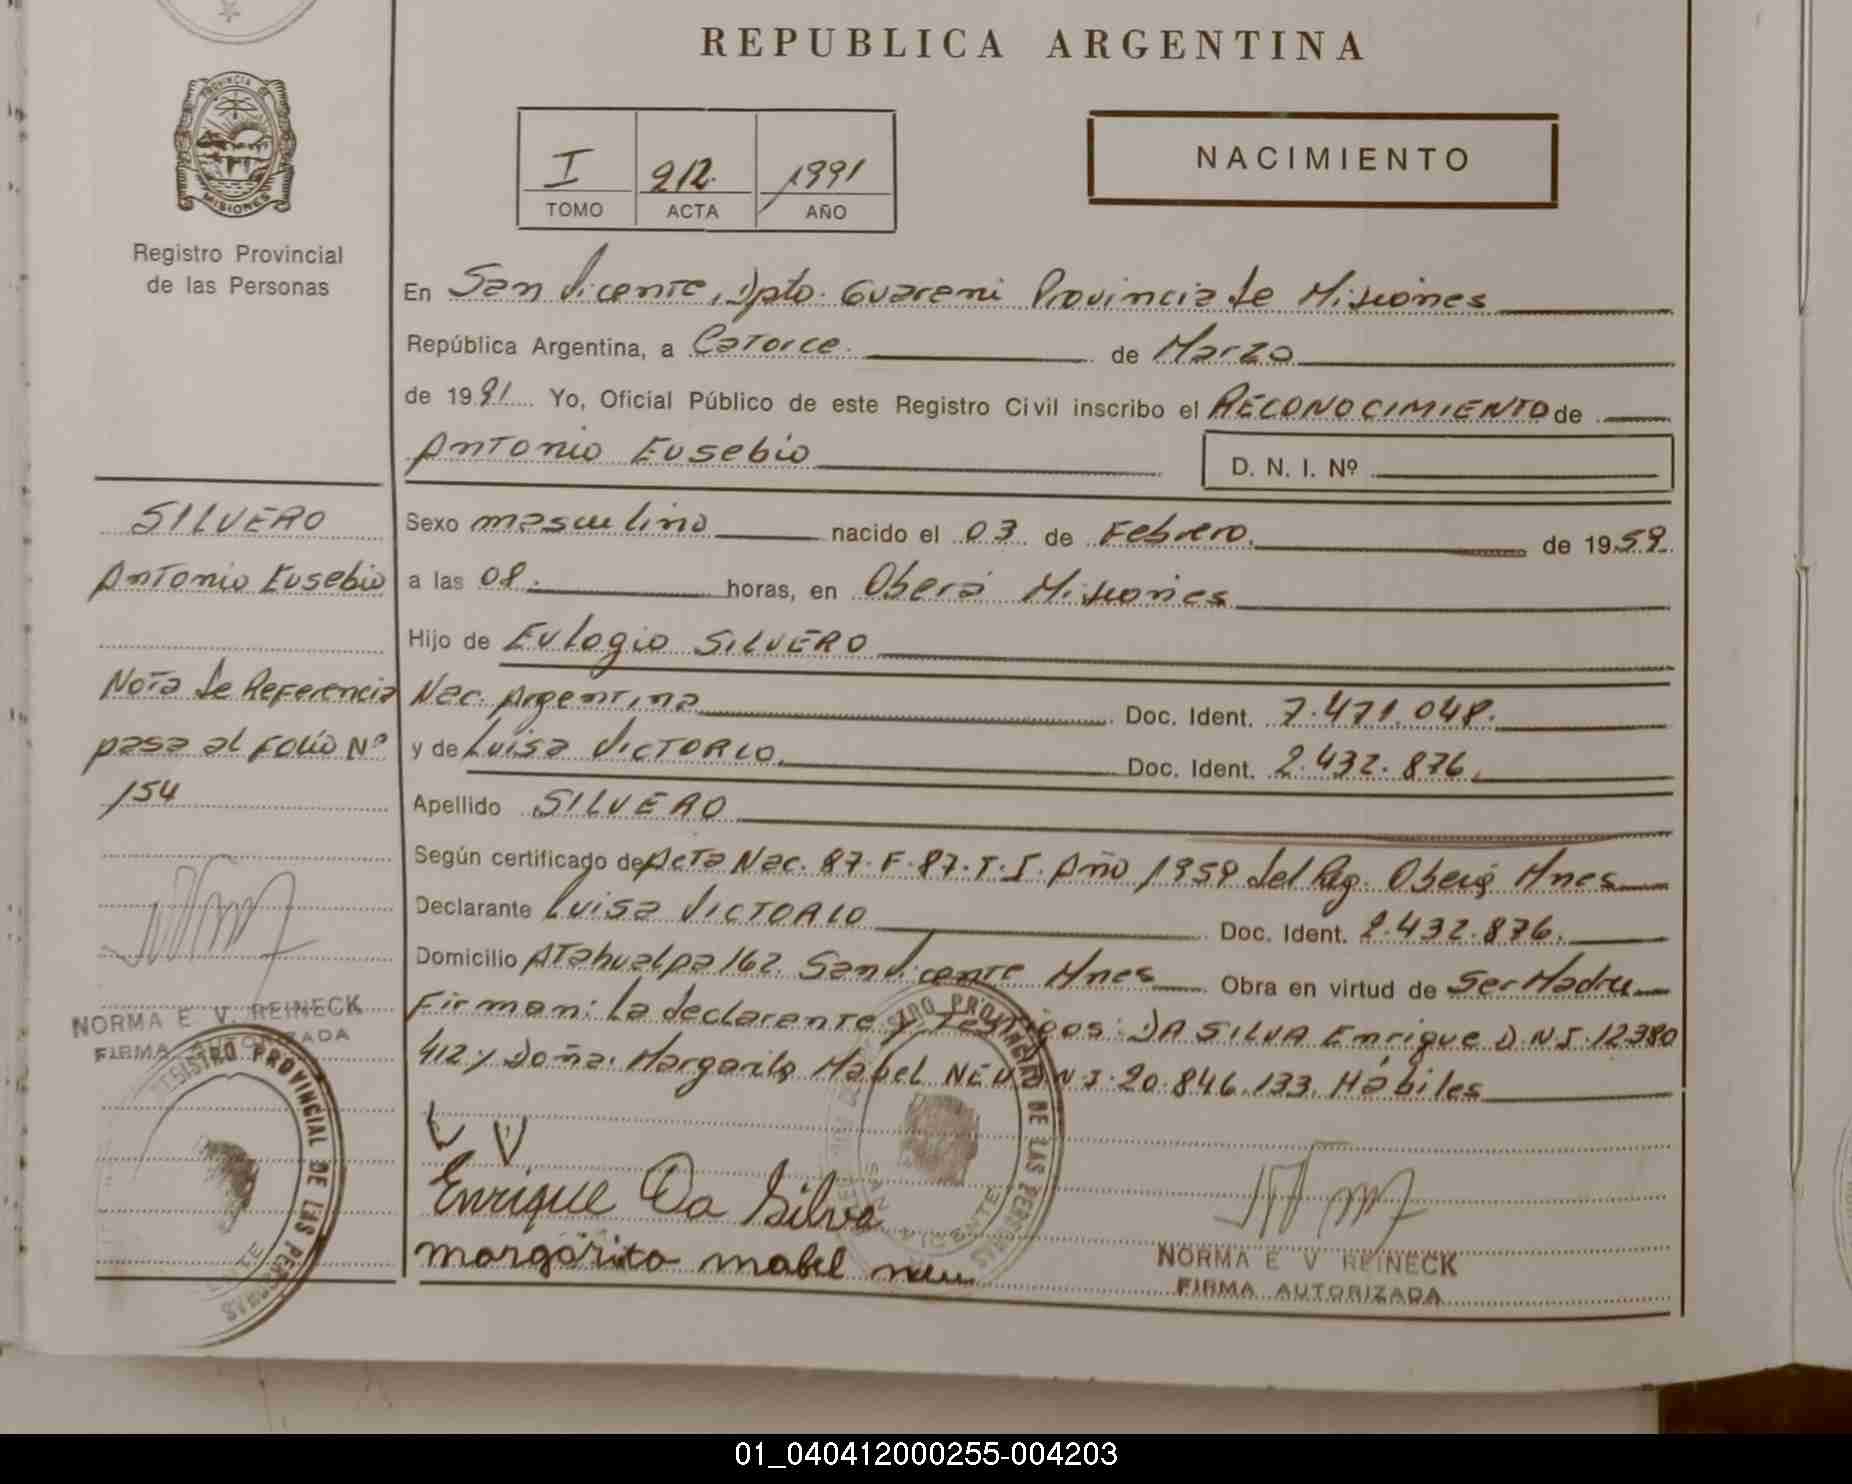 REPUBLICA ARGENTINA
PROVINCIA DE
MISIONES
Registro Provincial
de las Personas
I 212. 1991
TOMO ACTA AÑO
NACIMIENTO
En San Vicente, Dpto. Guarani Provincia de Misiones
República Argentina, a Catorce. de Marzo
de 1991 Yo, Oficial Público de este Registro Civil inscribo el RECONOCIMIENTO de
Antonio Eusebio D. N. I. Nº
Sexo masculino nacido el 03 de Febrero. de 1959.
a las 08. horas, en Oberá Misiones
Hijo de Eulogio SILVERO
Nac. Argentina Doc. Ident. 7.471.048.
y de Luisa VICTORIO. Doc. Ident. 2.432.876.
Apellido SILVERO
Según certificado de Acta Nac. 87. F. 87. T. I. Año 1959 del Reg. Oberá Mnes
Declarante Luisa VICTORIO Doc. Ident. 2.432.876.
Domicilio Atahualpa 162. San Vicente Mnes Obra en virtud de Ser Madre
Firman: La declarante y Testigos: DA SILVA Enrique D.N.I. 12380
412 y Doña. Margarita Mabel NEU D.N.I. 20.846.133. Hábiles
L V
Enrique Da Silva
margarita mabel neu
NORMA E V REINECK
FIRMA AUTORIZADA
SILVERO
Antonio Eusebio
Nota de Referencia
pasa al Folio Nº
154
NORMA E V. REINECK
FIRMA AUTORIZADA
REGISTRO PROVINCIAL DE LAS PERSONAS
REGISTRO PROVINCIAL DE LAS PERSONAS
SAN VICENTE
01_040412000255-004203